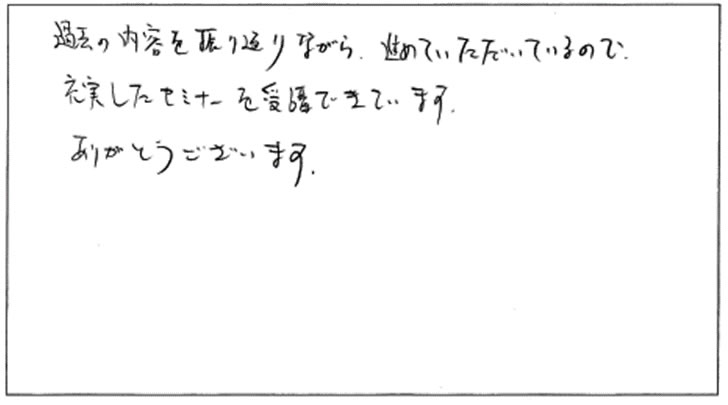 過去の内容を振り返りながら、進めていただいているので、
充実したセミナーを受講できています。
ありがとうございます。